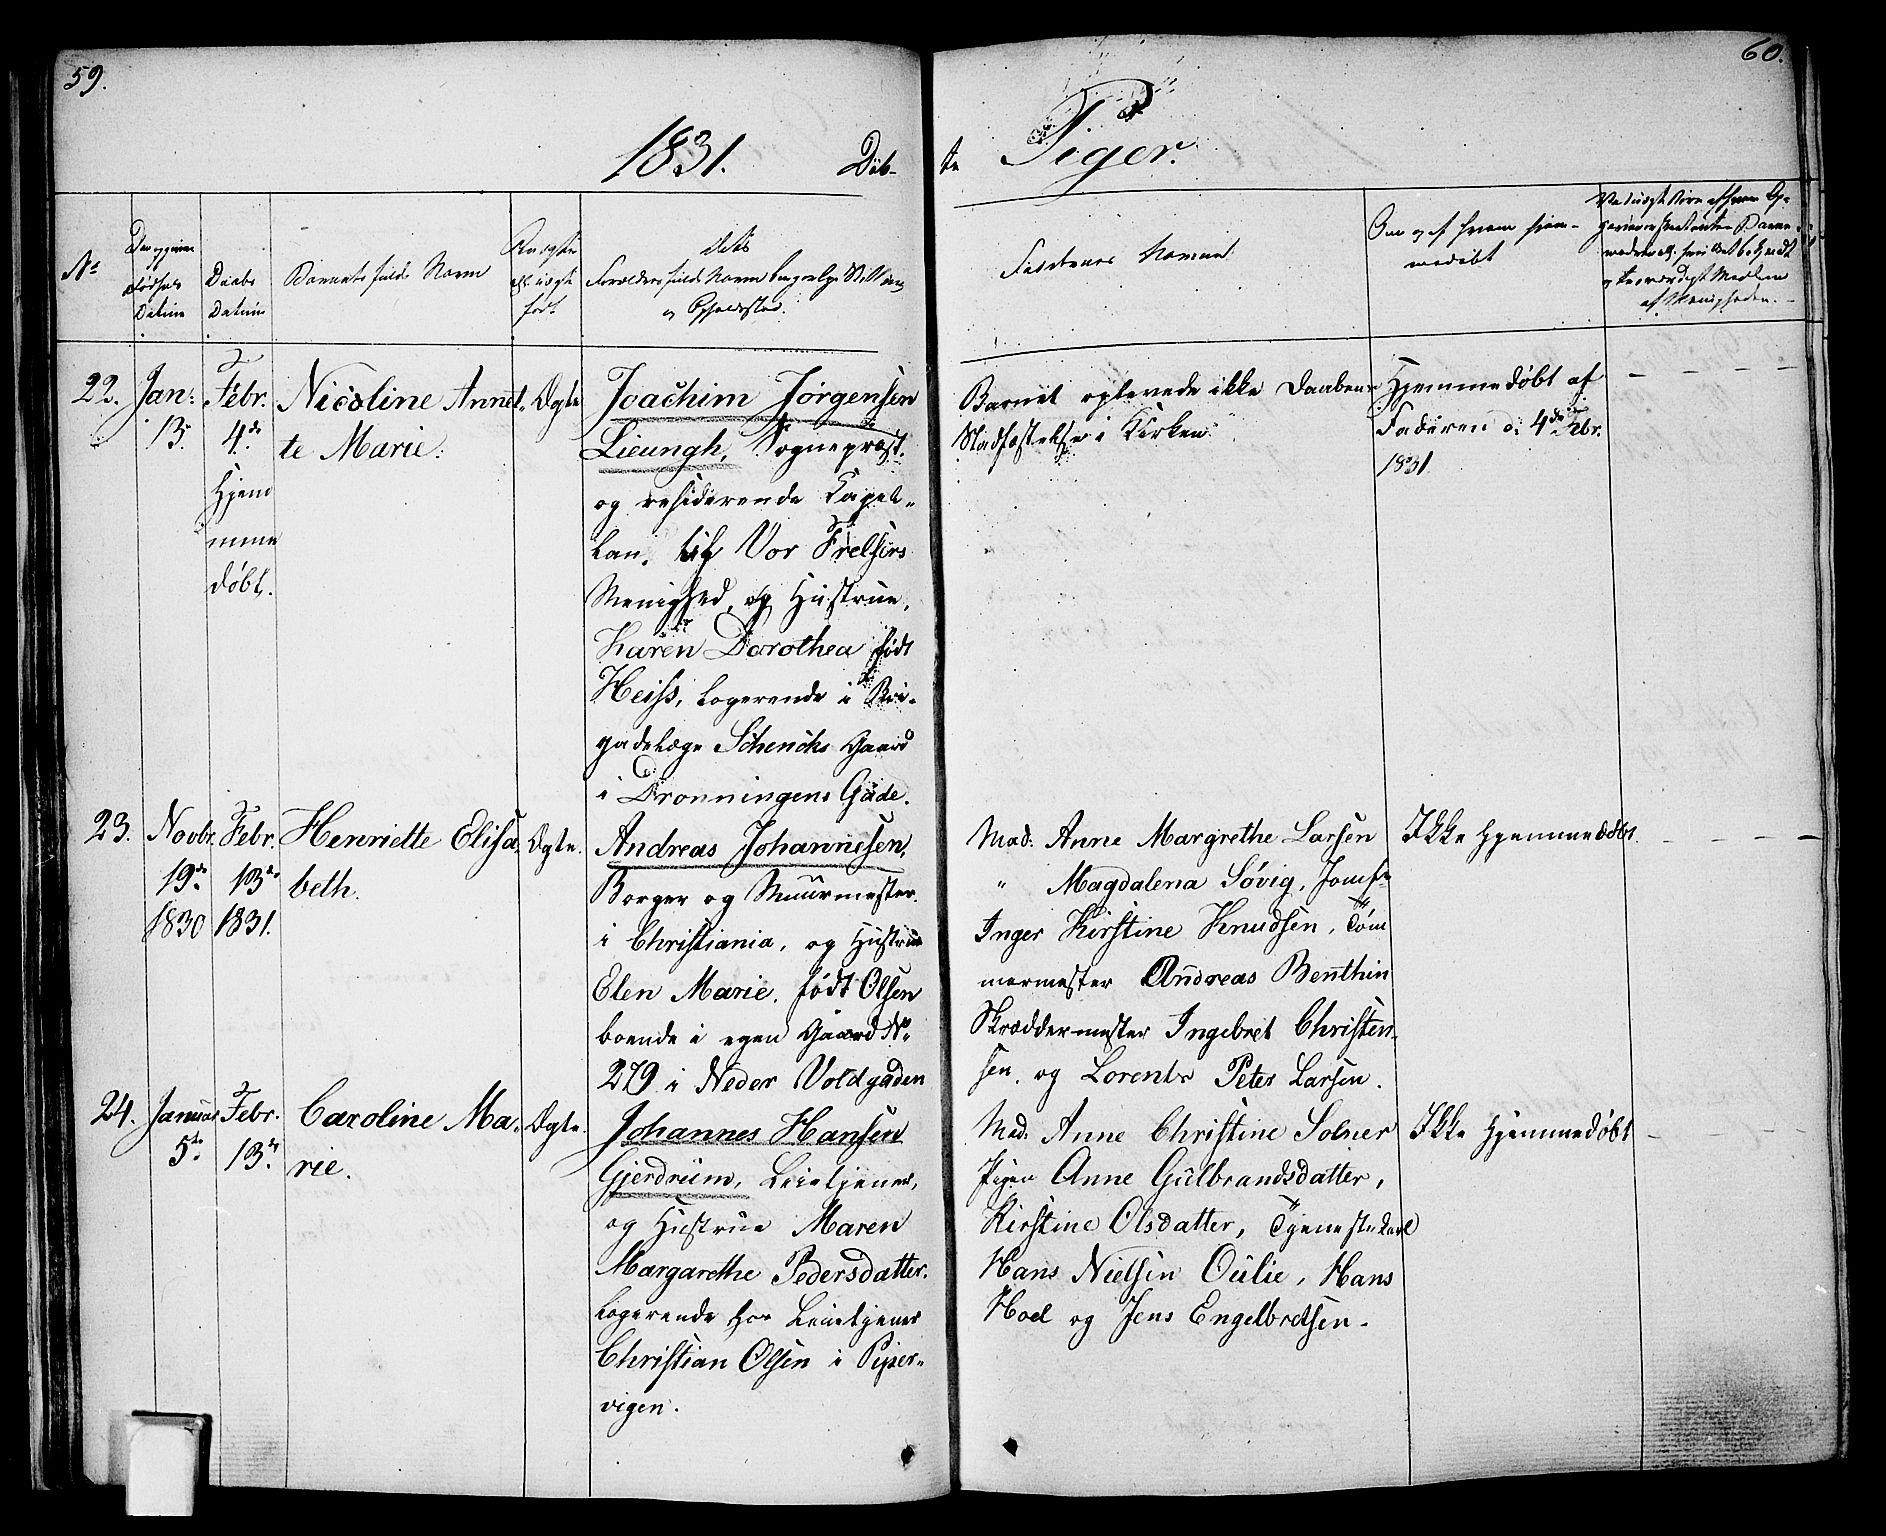 59.
60.
1831. Døb-
te Piger.
No
Døbs
Datum
Barnets fulde Navn
født
Forældres fulde Navn borgerlige Stilling
og Opholdssted.
Faddernes Navne
Om og af hvem hjem-
medøbt
af Menigheden.
22.
Jan:
13
Febr.
4de
Hjem
mme
døbt.
Nicoline Annet-
te Marie.
Ægte
Joachim Jørgensen
Lieungh, Sognepræst.
og residerende Capel-
lan, til Vor Frelsers
Menighed, og Hustrue,
Karen Dorothea født
Heiss, logerende i Bri-
gadelæge Schencks Gaard
i Dronningens Gade.
Barnet oplevede ikke Daabens
Stadfæstelse i Kirken.
Hjemmedøbt af
Faderen d. 4de Febr.
1831.
23.
Novbr.
19de
1830
Febr.
13de
1831.
Henriette Elisa
beth.
Ægte.
Andreas Johannesen,
Borger og Muurmester
i Christiania, og Hustrue
Elen Marie, født Olsen
boende i egen Gaard No.
279 i Neder Voldgaden
Mad. Anne Margrethe Larsen
" Magdalena Søvig, Jomfr
Inger Kirstine Knudsen, Tøm
mermester Andreas Benthin
Skræddermester Ingebret Christen-
sen, og Lorents Peter Larsen.
Ikke hjemmedøbt.
24.
Januar
5te
Febr.
13de
Caroline Ma-
rie.
Ægte.
Johannes Hansen
Gjerdrum, Leietjener,
og Hustrue Maren
Margarethe Pedersdatter.
logerende hos Leietjener
Christian Olsen i Piper-
vigen.
Mad. Anne Christine Solner
Pigen Anne Gulbrandsdatter,
Kirstine Olsdatter, Tjenestekarl
Hans Nielsen Oulie, Hans
Hoel og Jens Engelbretsen.
Ikke hjemmedøbt